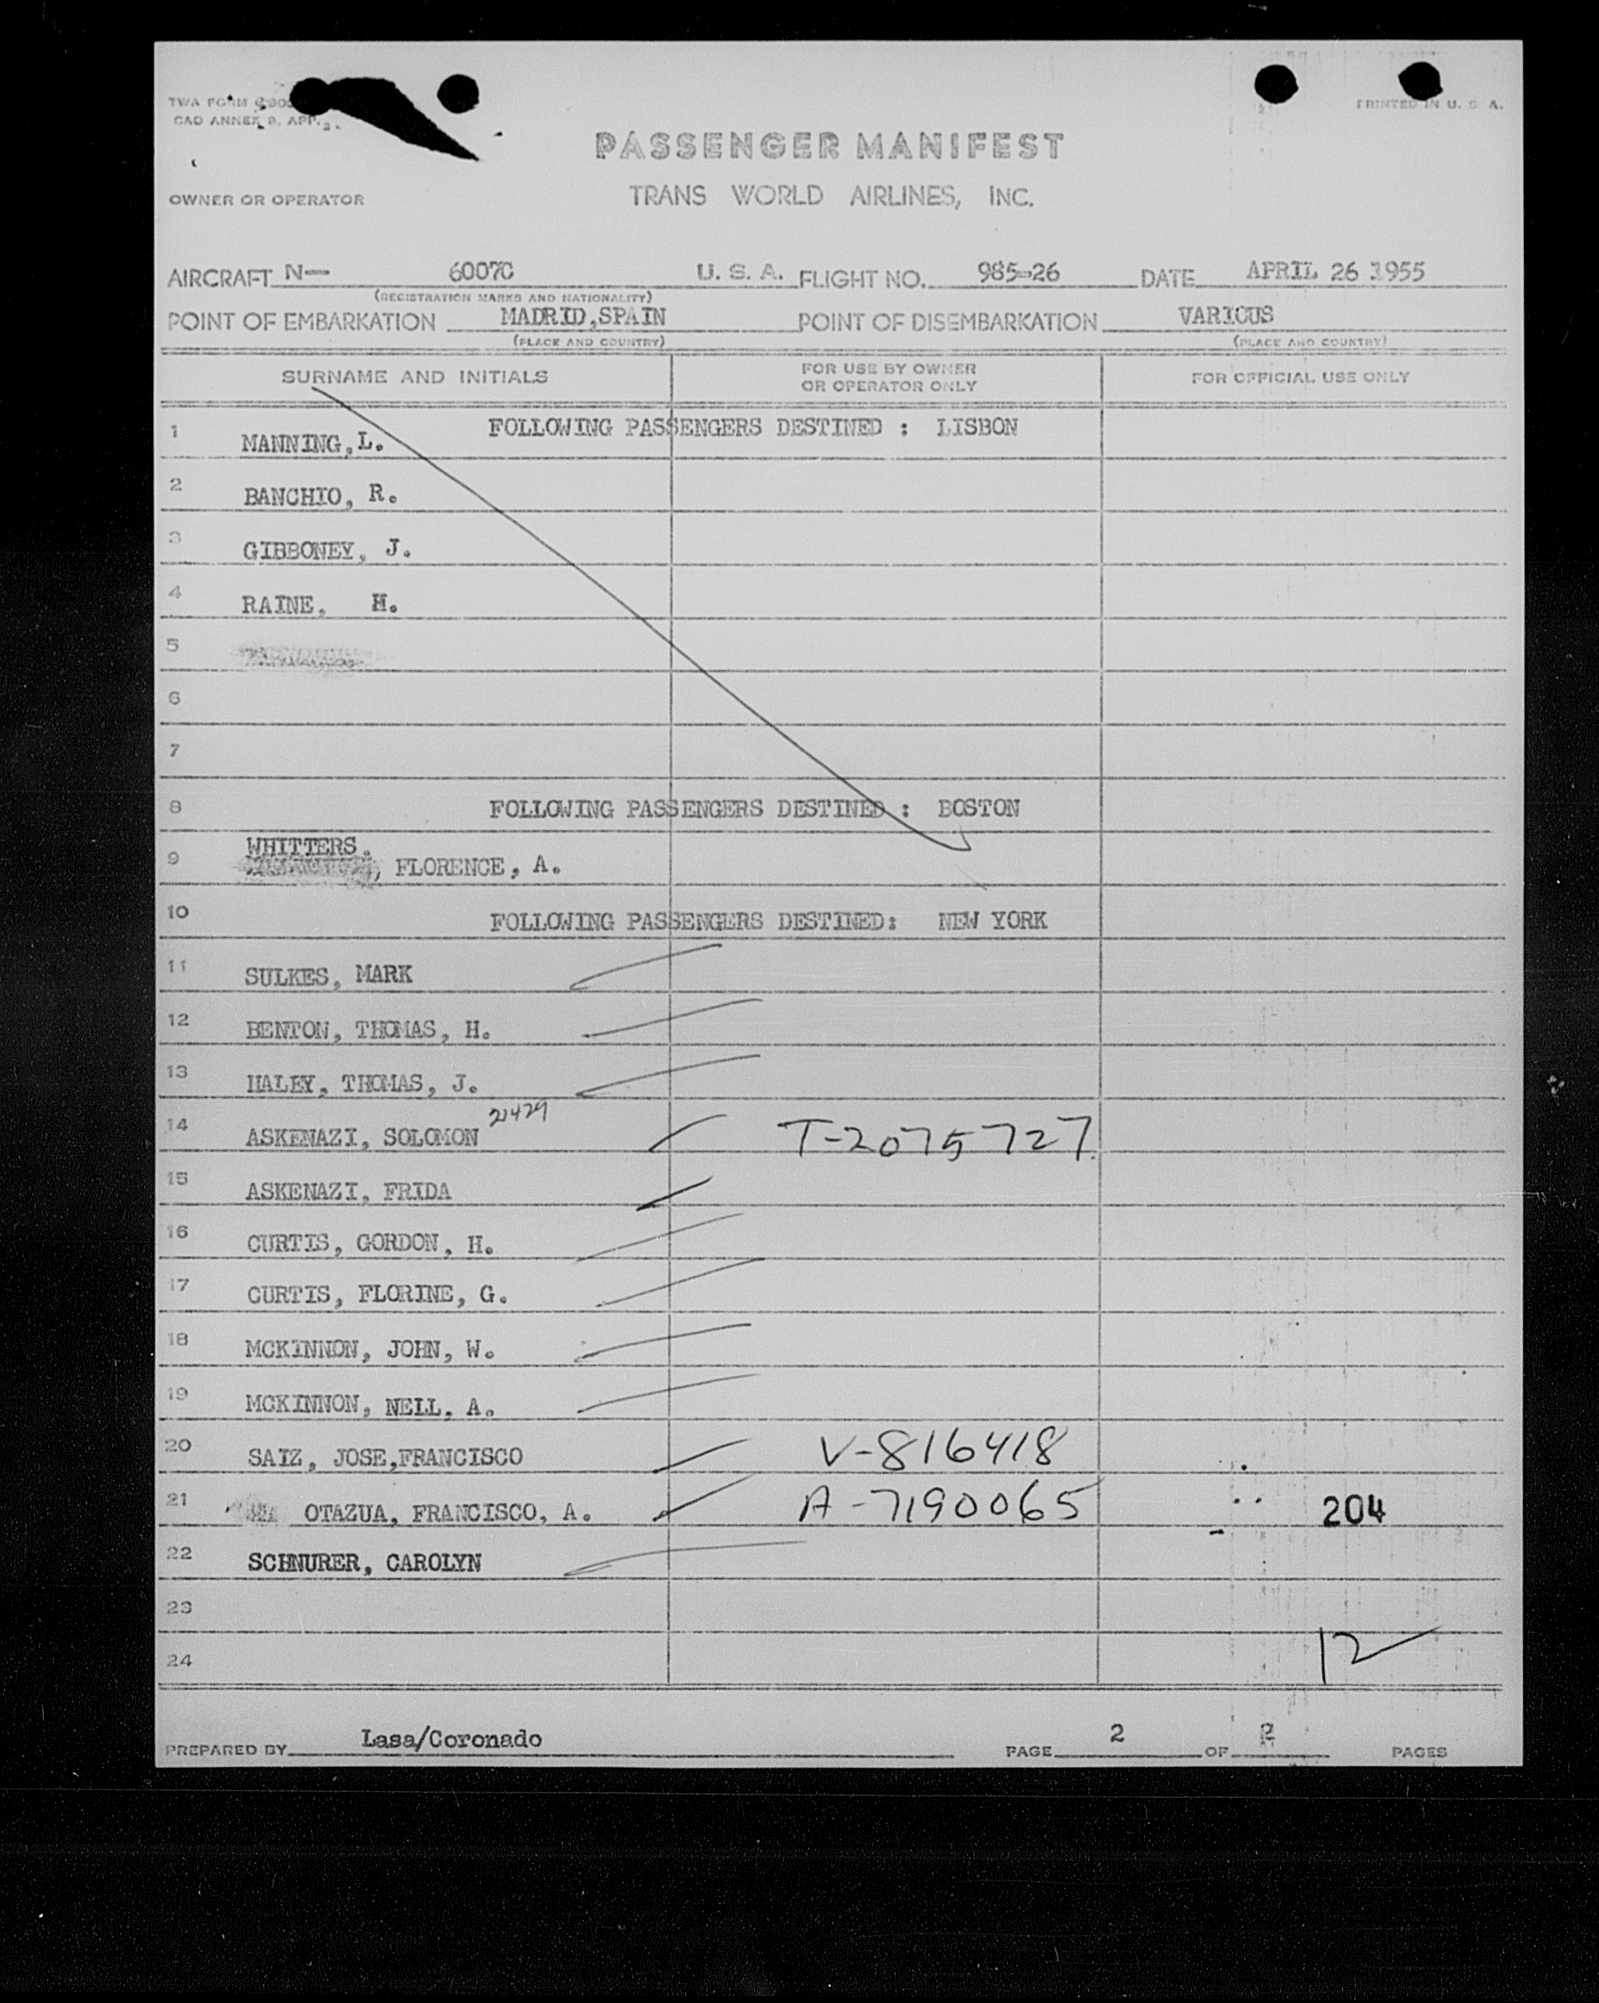 PRINTED IN U. S. A.
TWA FORM
CAO ANNEX 9. APP.
PASSENGER MANIFEST
OWNER OR OPERATOR
TRANS WORLD AIRLINES, INC.
AIRCRAFT N- 6007C U. S. A. FLIGHT NO. 985-26 DATE APRIL 26 1955
(REGISTRATION MARKS AND NATIONALITY)
POINT OF EMBARKATION MADRID,SPAIN POINT OF DISEMBARKATION VARIOUS
(PLACE AND COUNTRY) (PLACE AND COUNTRY)
SURNAME AND INITIALS
FOR USE BY OWNER
OR OPERATOR ONLY
FOR OFFICIAL USE ONLY
FOLLOWING PASSENGERS DESTINED : LISBON
1 MANNING,L.
2 BANCHIO, R.
3 GIBBONEY, J.
4 RAINE, H.
5
6
7
8 FOLLOWING PASSENGERS DESTINED : BOSTON
WHITTERS.
9 , FLORENCE, A.
10 FOLLOWING PASSENGERS DESTINED: NEW YORK
11 SULKES, MARK
12 BENTON, THOMAS, H.
13 HALEY, THOMAS, J.
14 ASKENAZI, SOLOMON 21429 T-2075727
15 ASKENAZI, FRIDA
16 CURTIS, GORDON, H.
17 CURTIS, FLORINE, G.
18 MCKINNON, JOHN, W.
19 MCKINNON, NELL, A.
20 SAIZ, JOSE,FRANCISCO V-816418
21 OTAZUA, FRANCISCO, A. A-7190065 204
22 SCHNURER, CAROLYN
23
24 12
PREPARED BY Lasa/Coronado PAGE 2 OF 2 PAGES